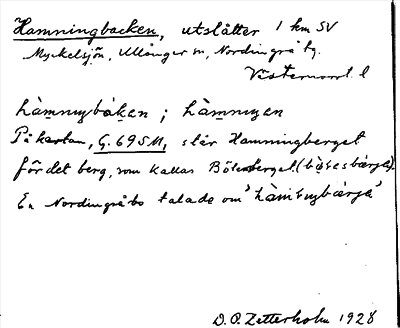 Hamningbacken, utslåtter 1 km SV
Myckelsjön, Ullånger sn, Nordingrå tg.
Västernorrl. l
hàmnıŋbákan ; hàmnıŋan
På kartan, G. 69 SM, står Hamningberget
för det berg, som kallas Bölesberget (bø̀lesbærga).
En Nordingråbo talade om "hàmnıŋbærga"
D. O. Zetterholm 1928